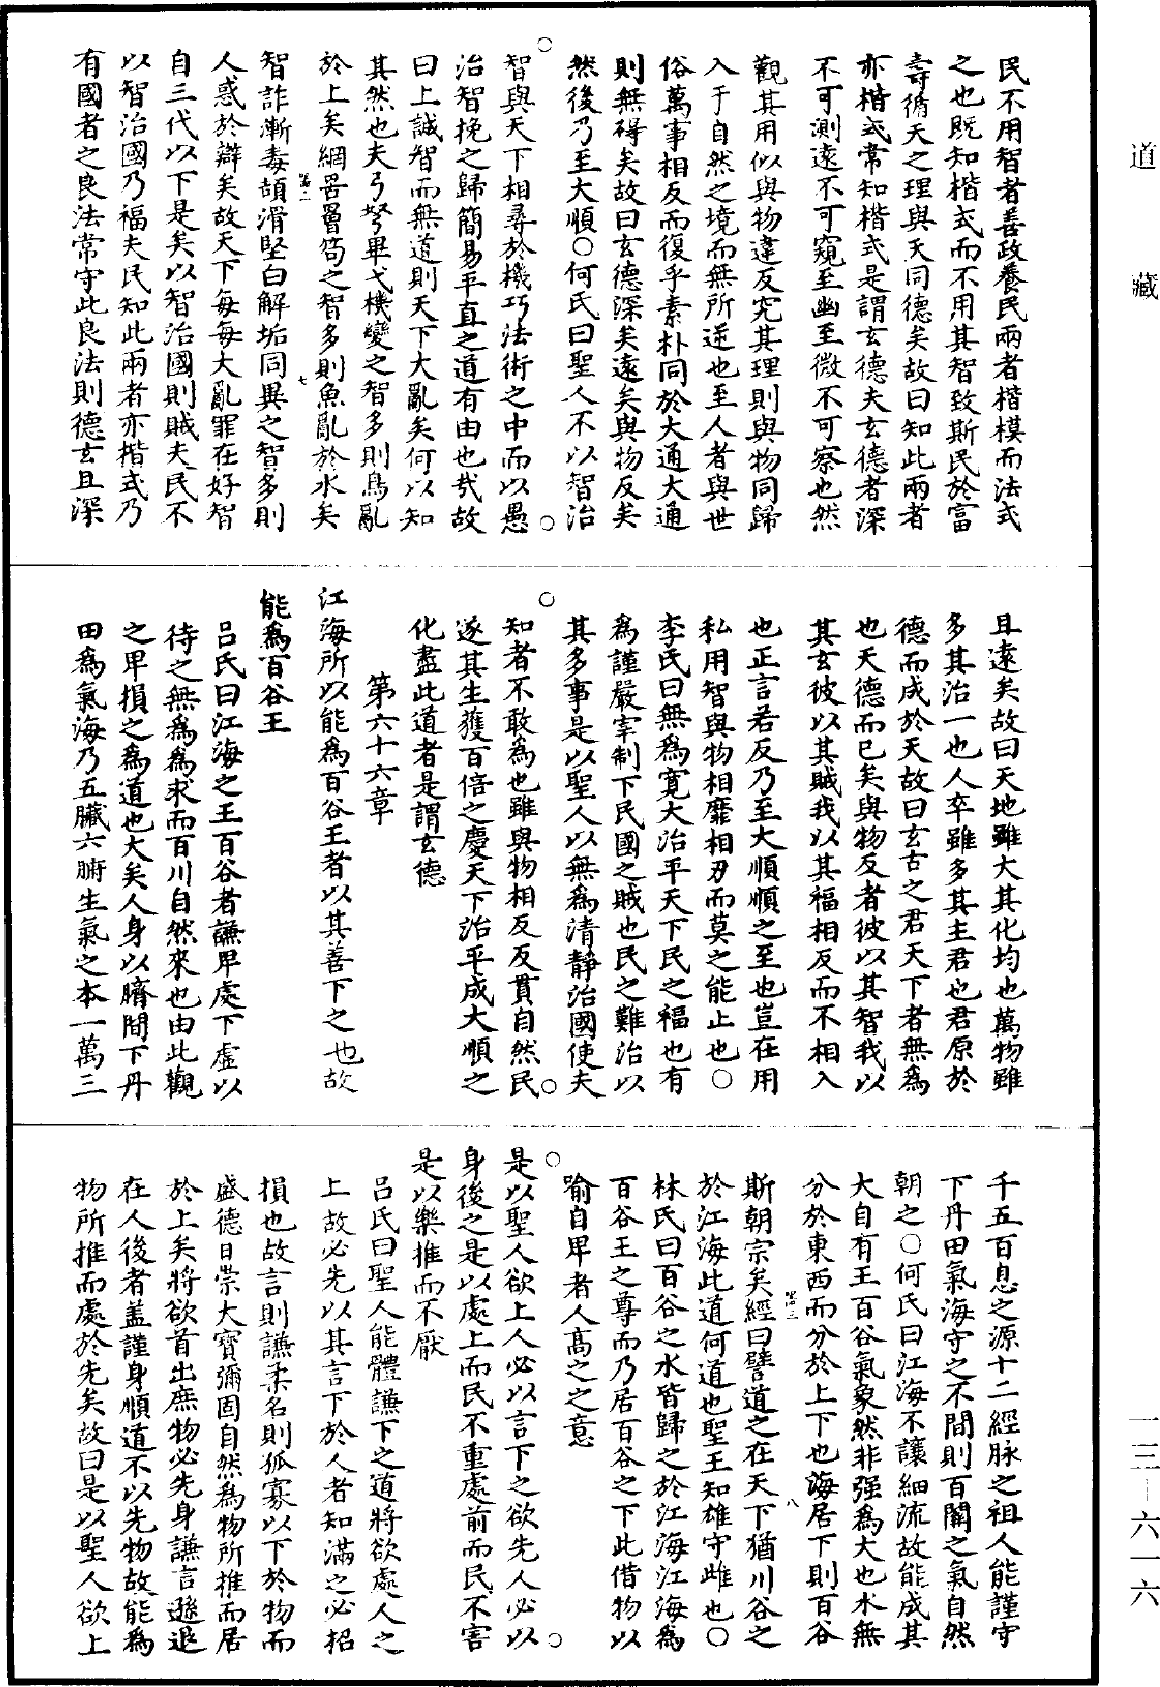 道藏
民不用智者善政養民兩者楷模而法式
之也既知楷式而不用其智致斯民於富
壽循天之理與天同德矣故曰知此兩者
亦楷式常知楷式是謂玄德夫玄德者深
不可測遠不可窺至幽至微不可察也然
觀其用似與物違反究其理則與物同歸
入于自然之境而無所逆也至人者與世
俗萬事相反而復乎素朴同於大通大通
則無碍矣故曰玄德深矣遠矣與物反矣
然後乃至大順○何氏曰聖人不以智治
智與天下相尋於機巧法術之中而以愚
治智挽之歸簡易平直之道有由也哉故
曰上誠智而無道則天下大亂矣何以知
其然也夫弓弩畢弋機變之智多則鳥亂
於上矣網罟罾笱之智多則魚亂於水矣
七
智詐漸毒頡滑堅白解垢同異之智多則
人惑於辯矣故天下每每大亂罪在好智
自三代以下是矣以智治國則賊夫民不
以智治國乃福夫民知此兩者亦楷式乃
有國者之良法常守此良法則德玄且深
且遠矣故曰天地雖大其化均也萬物雖
多其治一也人卒雖多其主君也君原於
德而成於天故曰玄古之君天下者無為
也天德而已矣與物反者彼以其智我以
其玄彼以其賊我以其福相反而不相入
也正言若反乃至大順順之至也豈在用
私用智與物相靡相刃而莫之能止也○
李氏曰無為寬大治平天下民之福也有
為謹嚴宰制下民國之賊也民之難治以
其多事是以聖人以無為清靜治國使夫
知者不敢為也雖與物相反反貫自然民
遂其生獲百倍之慶天下治平成大順之
化盡此道者是謂玄德
第六十六章
江海所以能為百谷王者以其善下之也故
能為百谷王
呂氏曰江海之王百谷者謙卑處下虛以
待之無為為求而百川自然來也由此觀
之卑損之為道也大矣人身以臍間下丹
田為氣海乃五臟六腑生氣之本一萬三
千五百息之源十二經脉之祖人能謹守
下丹田氣海守之不間則百關之氣自然
朝之○何氏曰江海不讓細流故能成其
大自有王百谷氣象然非强為大也水無
分於東西而分於上下也海居下則百谷
八
斯朝宗矣經曰譬道之在天下猶川谷之
於江海此道何道也聖王知雄守雌也○
林氏曰百谷之水皆歸之於江海江海為
百谷王之尊而乃居百谷之下此借物以
喻自卑者人高之之意
是以聖人欲上人必以言下之欲先人必以
身後之是以處上而民不重處前而民不害
是以樂推而不厭
呂氏曰聖人能體謙下之道將欲處人之
上故必先以其言下於人者知滿之必招
損也故言則謙柔名則狐寡以下於物而
盛德日崇大寶彌固自然為物所推而居
於上矣將欲首出庶物必先身謙言遜退
在人後者蓋謹身順道不以先物故能為
物所推而處於先矣故曰是以聖人欲上
一三—六一六